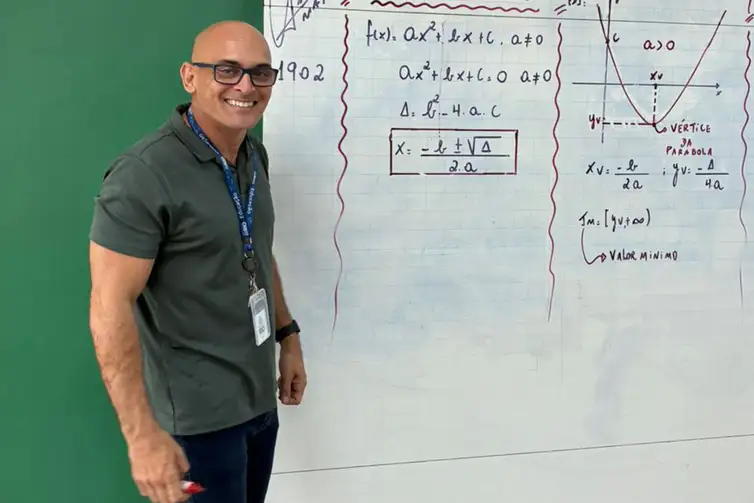 1902
f(x)= ax²+ bx+C, a≠0
ax²+bx+C=0 a≠0
Δ= b²-4.a.c
X= -b ±√Δ / 2.a
C
a>0
Xv
yv
VÉRTICE
DA
PARÁBOLA
Xv= -b/2a ; yv= -Δ/4a
Im=[yv,+∞)
VALOR MÍNIMO